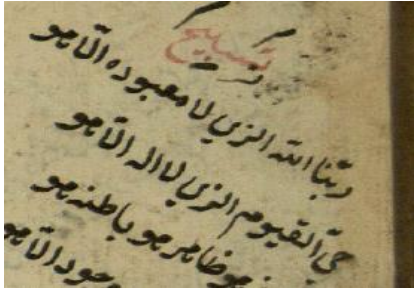 تسبيح
ربنا الله الذي لا معبوده الا هو
حي القيوم الذي لا اله الا هو
هو ظاهر هو باطنه هو
وجود الا هو